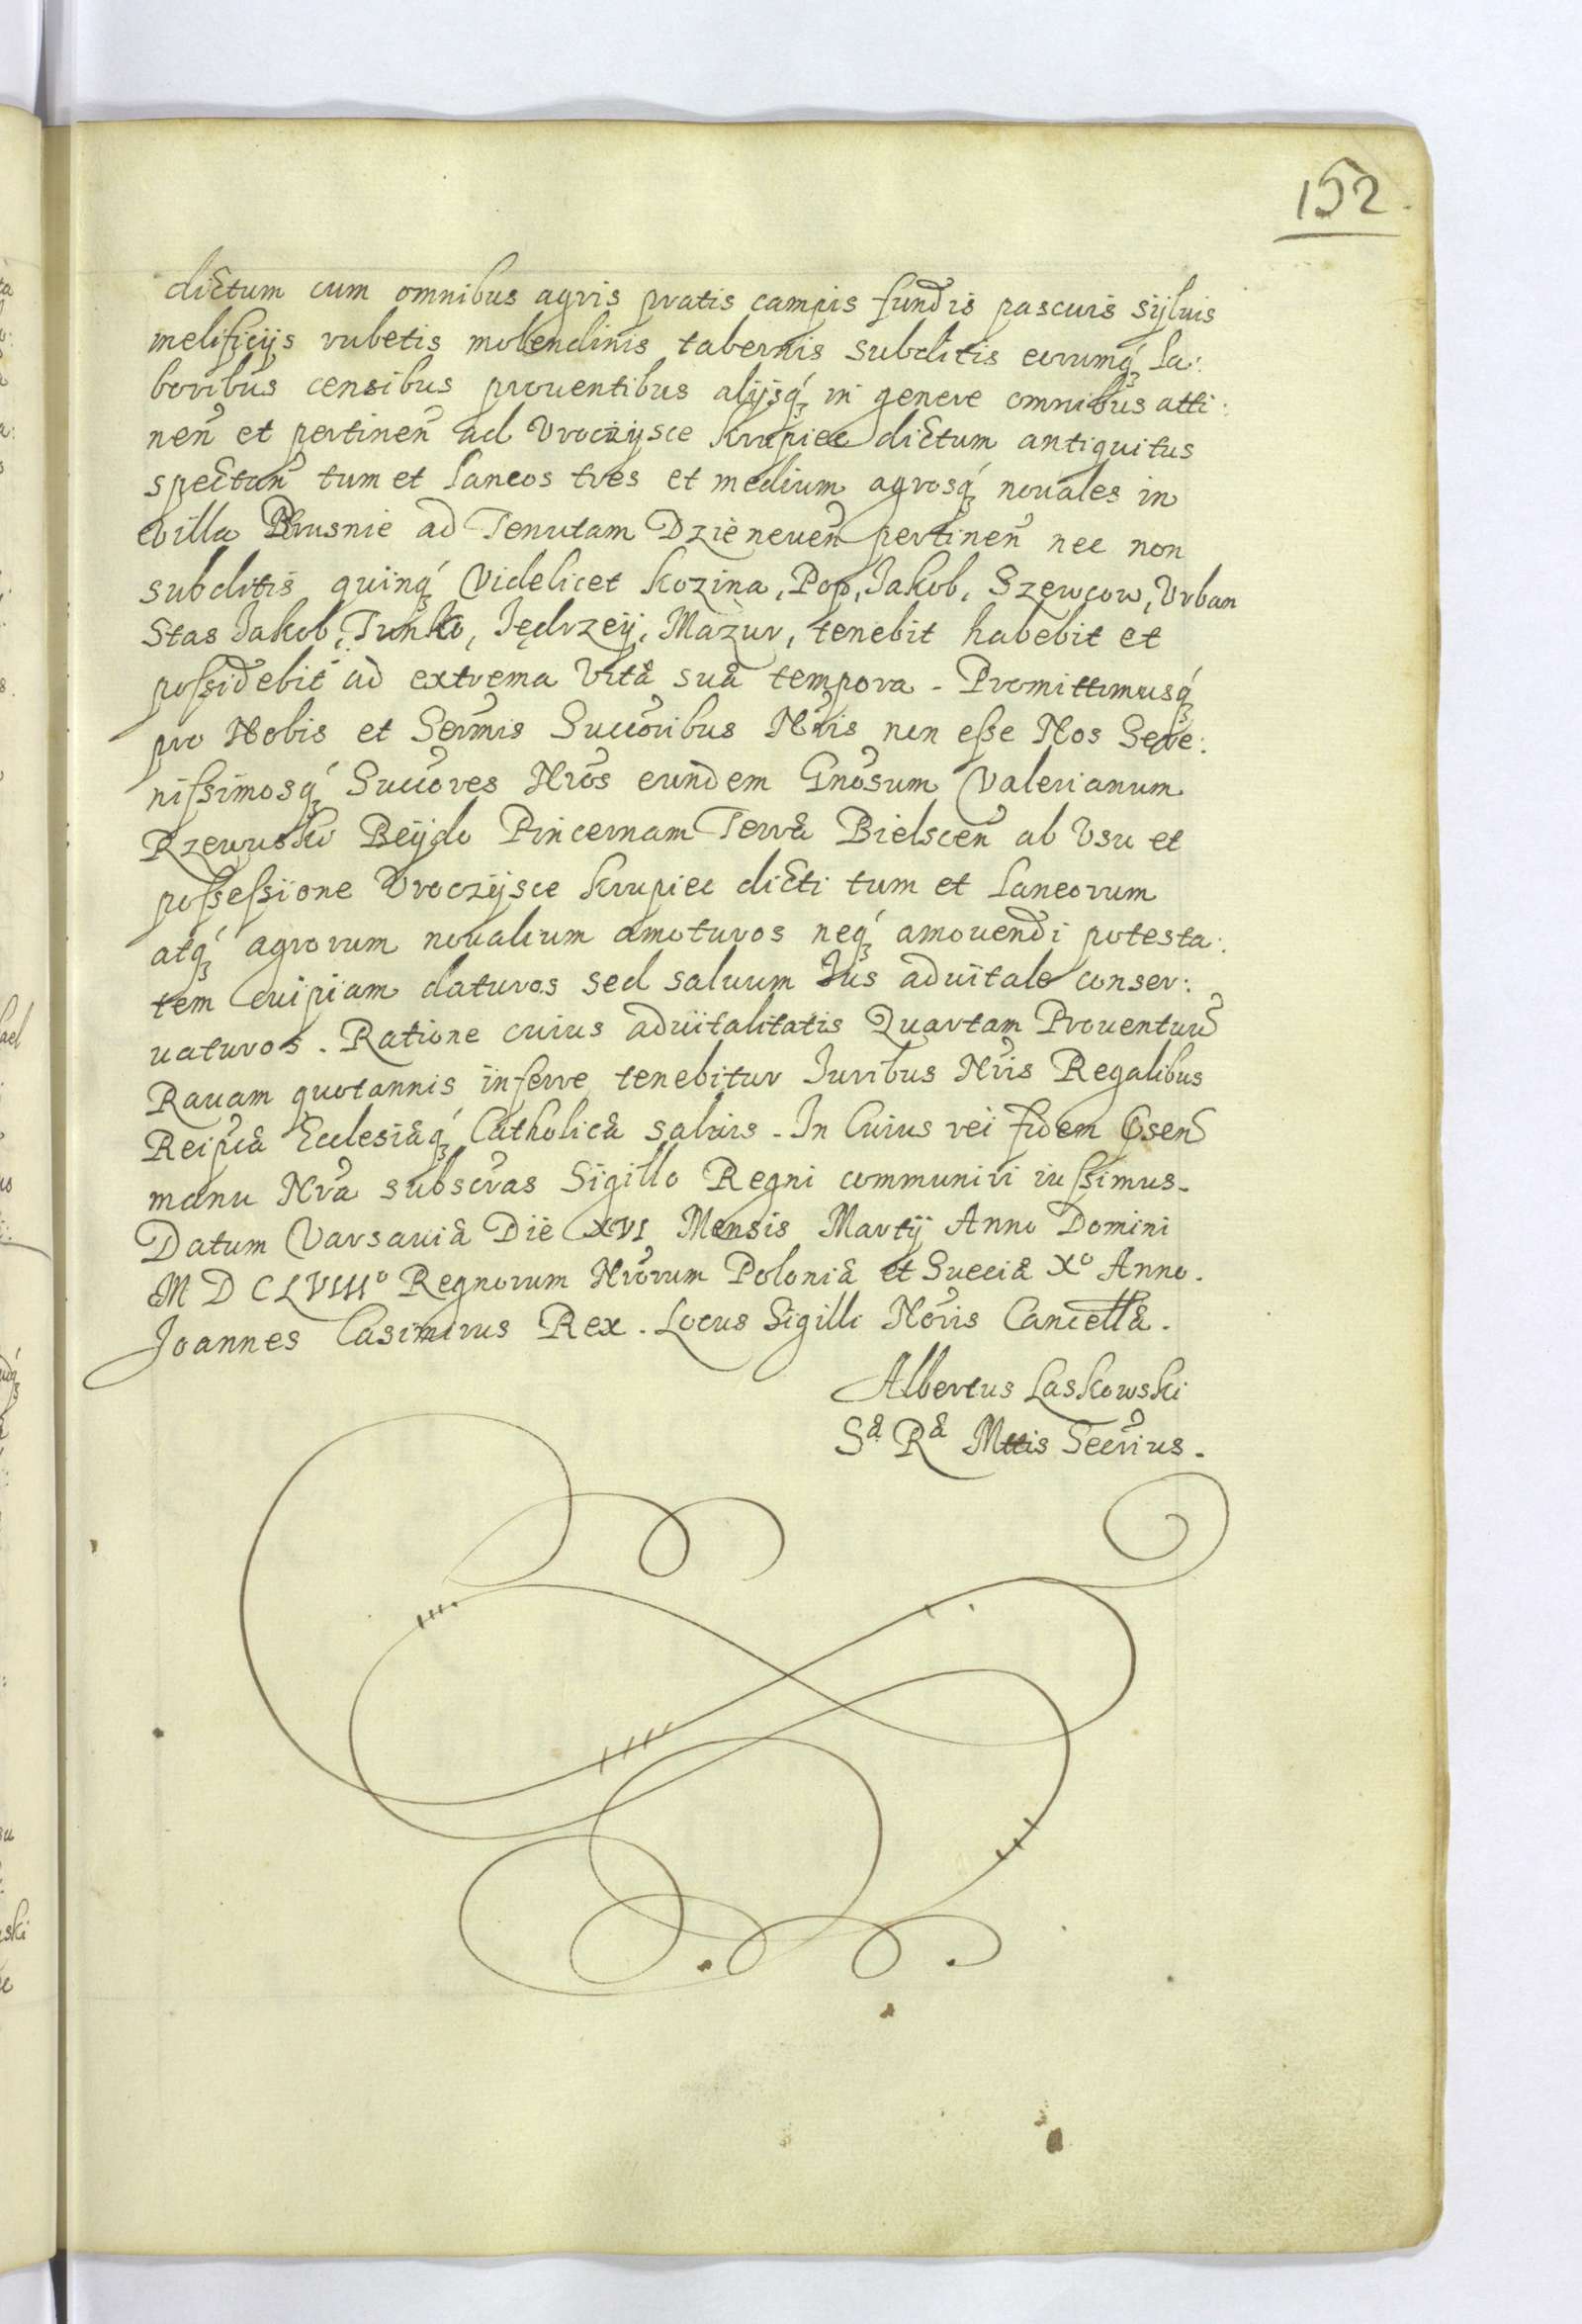 152
dictum cum omnibus agris pratis campis fundis pascuis sylvis
melificijs rubetis molendinis tabernis subditis eorumq́ꝫ la:
boribus censibus prouentibus alijsq́ꝫ in genere omnibus atti:
neñ et pertineñ ad Vroczysce Krupiec dictum antiquitus
spectañ tum et laneos tres et medium agrosq́ꝫ nouales in
villa Brusnie ad Tenutam Dzieneueñ pertineñ nec non
subditis quinq́ꝫ Videlicet Kozina, Pop, Jakob, Szewcow, Vrban
Stas Jakob, Tunko, Jędrzeÿ, Mazur, tenebit habebit et
poſsidebit ad extrema Vitæ suæ tempora. Promittimusq́ꝫ
pro Nobis et Sermis Succoribus Nris non eſse Nos Sere:
niſsimosq́ꝫ Succores Nros eundem Gnosum Valerianum
Rzewusko Beÿdo Pincernam Terræ Bielsceñ ab Vsu et
poſseſsione Vroczÿsce Krupiec dicti tum et laneorum
atq́ꝫ agrorum noualium amoturos neq́ꝫ amouendi potesta:
tem cuipiam daturos sed saluum Jus aduitale conser:
uaturos. Ratione cuius aduitalitatis Quartam Prouentuũ
Rauam quotannis inferre tenebitur Juribus Nris Regalibus
Reipcæ Ecclesiæq́ꝫ Catholicæ saluis. In Cuius rei fidem P̃sen̄
manu Nra subscras Sigillo Regni communiri iuſsimus.
Datum Varsauiæ Die XVI Mensis Martÿ Anno Domini
M D C L VIIIº Regnorum Nrorum Poloniæ et Sueciæ Xº Anno.
Joannes Casimirus Rex. Locus Sigilli Noris Cancellæ.
Albertus Laskowski
Sæ Ræ Mttis Secrius.